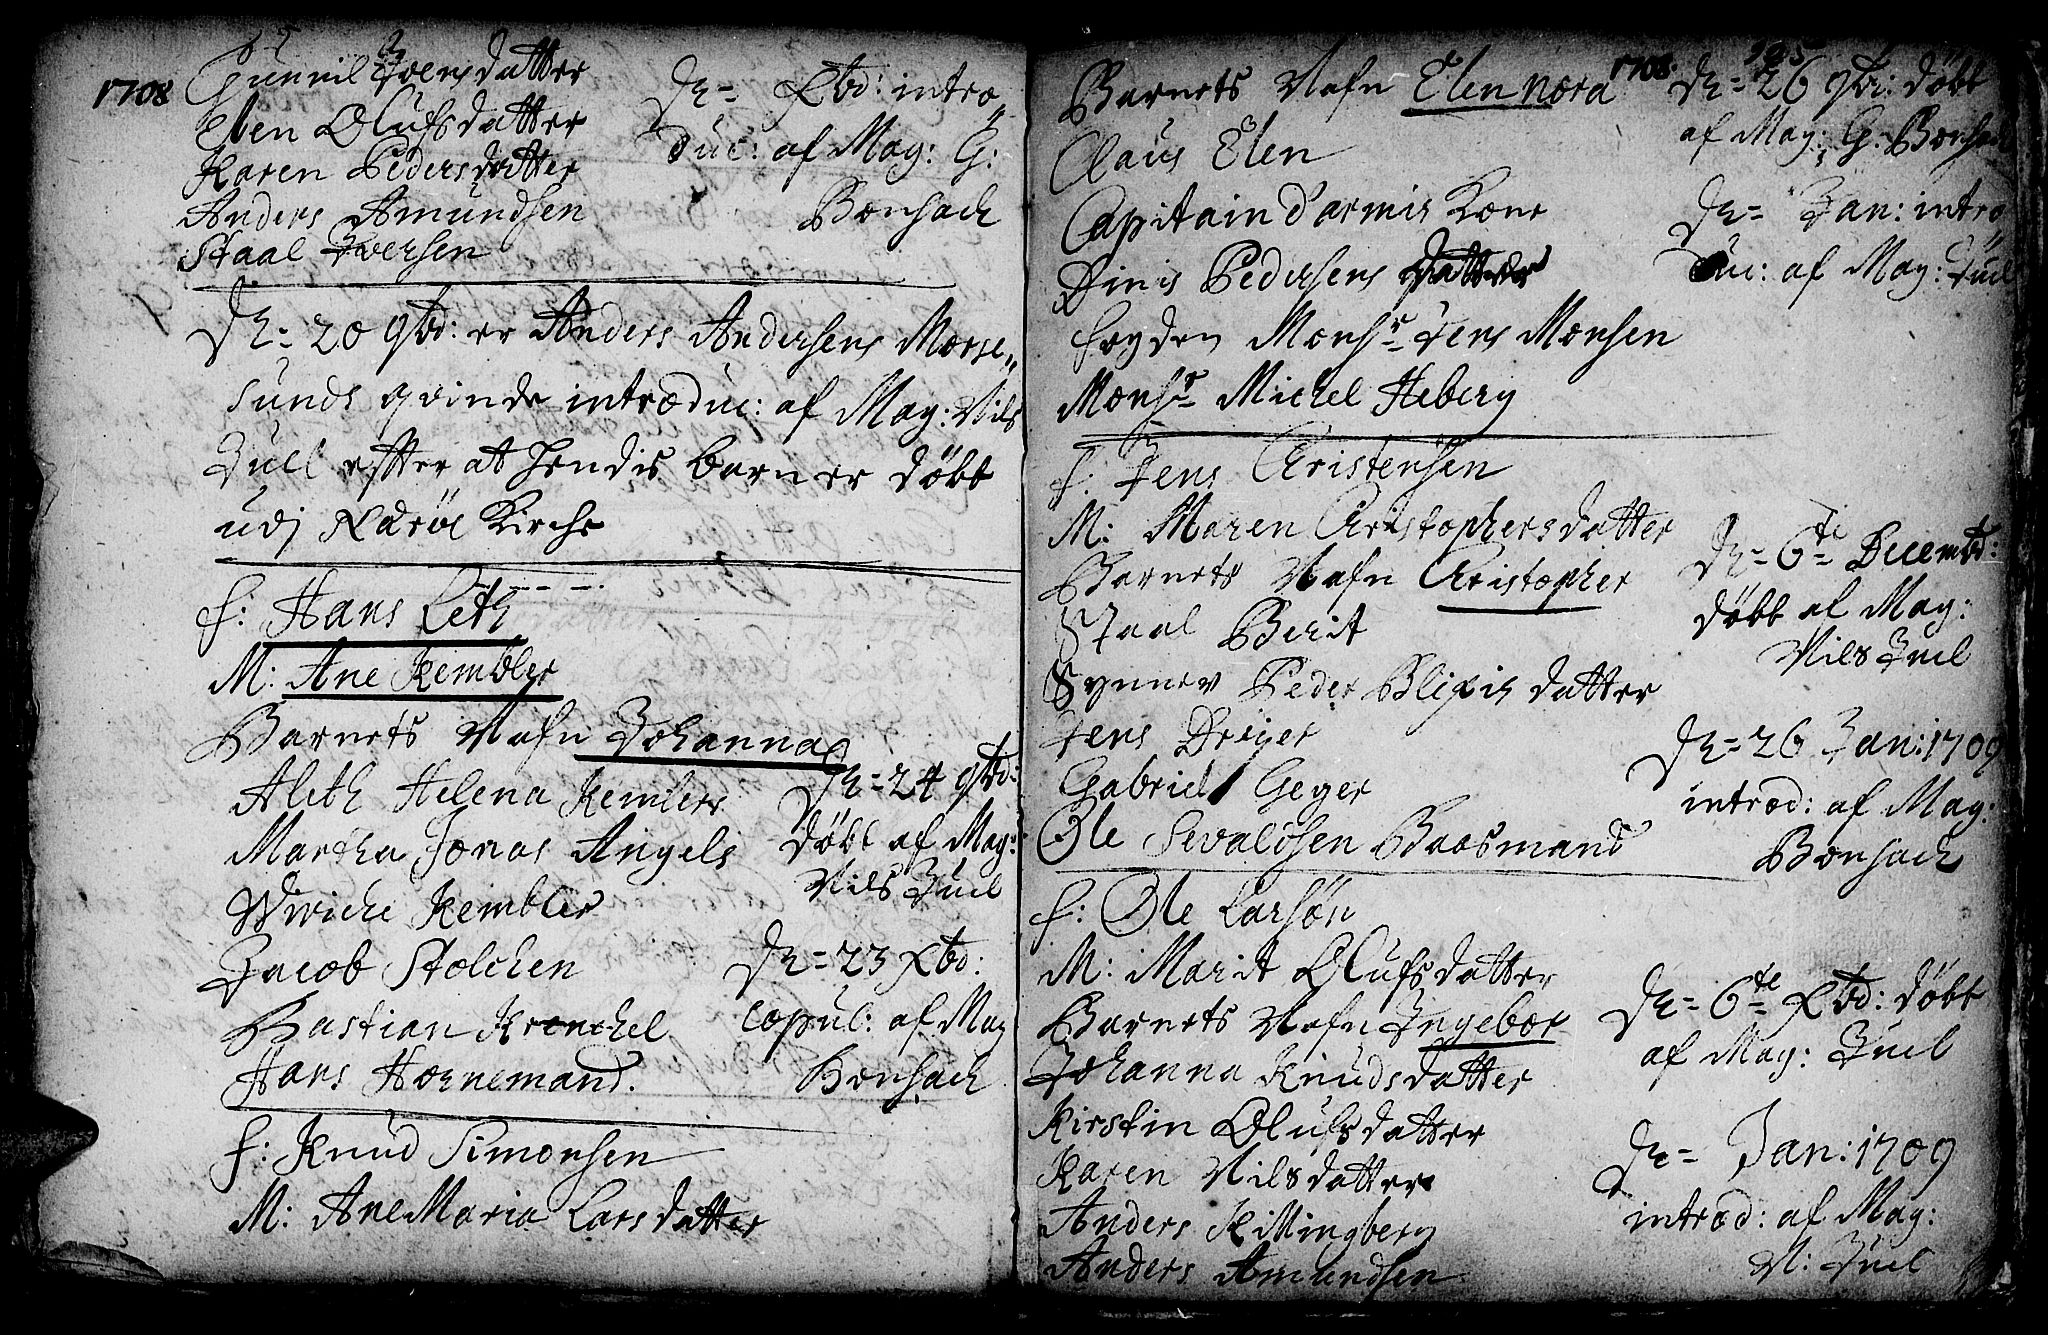 1708
Gunnil Iversdatter
Elen Olufsdatter
Karen Pedersdatter
Anders Amundsen
Staal Iversen
D= Xbd: intro
duc: af Mag: G:
Bonsach
D= 20 9bd: er Anders Andersens Morse„
sunds qvinde introduc: af Mag: Nils
Juel efter at hendis barn er døbt
udj Radrøe Kirche
f: Hans Leth
M: Ane Kembler
Barnets Nafn Johanna
Aleth Helena Kemlers
Martha Jonas Angels
Wiviche Kembler
Jacob Stolchen
Bastian Kronchel
Hans Hornemand.
D= 24 9bd:
døbt af Mag:
Nils Juel
D= 23 Xbd:
copul: af Mag
Bonsach
f: Knud Simonsen
M: Ane Maria Larsdatter
1708
Barnets Nafn Elennora
Claus Elen
Capitain d'armis Kone
Dinis Pedersens datter
fogden Monsr Jens Monsen
Monsr Michel Heberg
D= 26 9br: døbt
af Mag: G. Bonsach
D= Jan: intro
duc: af Mag: Juel
f: Jens Christensen
M: Maren Christophersdatter
Barnets Nafn Christopher
Staal Berit
Synnev Peder Blixis datter
Jens Dreyer
Gabriel Geger
Ole Sevaldsen Baasmand
D= 6te Decembd:
døbt af Mag:
Nils Juel
D= 26 Jan: 1709
introd: af Mag:
Bonsach
f: Ole Larsøn
M: Marit Olufsdatter
Barnets Nafn Ingebor
Johanna Knudsdatter
Kirstin Olufsdatter
Karen Nilsdatter
Anders Killingberg
Anders Amundsen
D= 6te Xbd: døbt
af Mag: Juel
D= Jan: 1709
introd: af Mag:
N: Juel